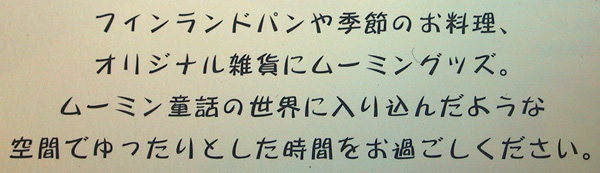 フィンランドパンや季節のお料理、
オリジナル雑貨にムーミングッズ。
ムーミン童話の世界に入り込んだような
空間でゆったりとした時間をお過ごしください。